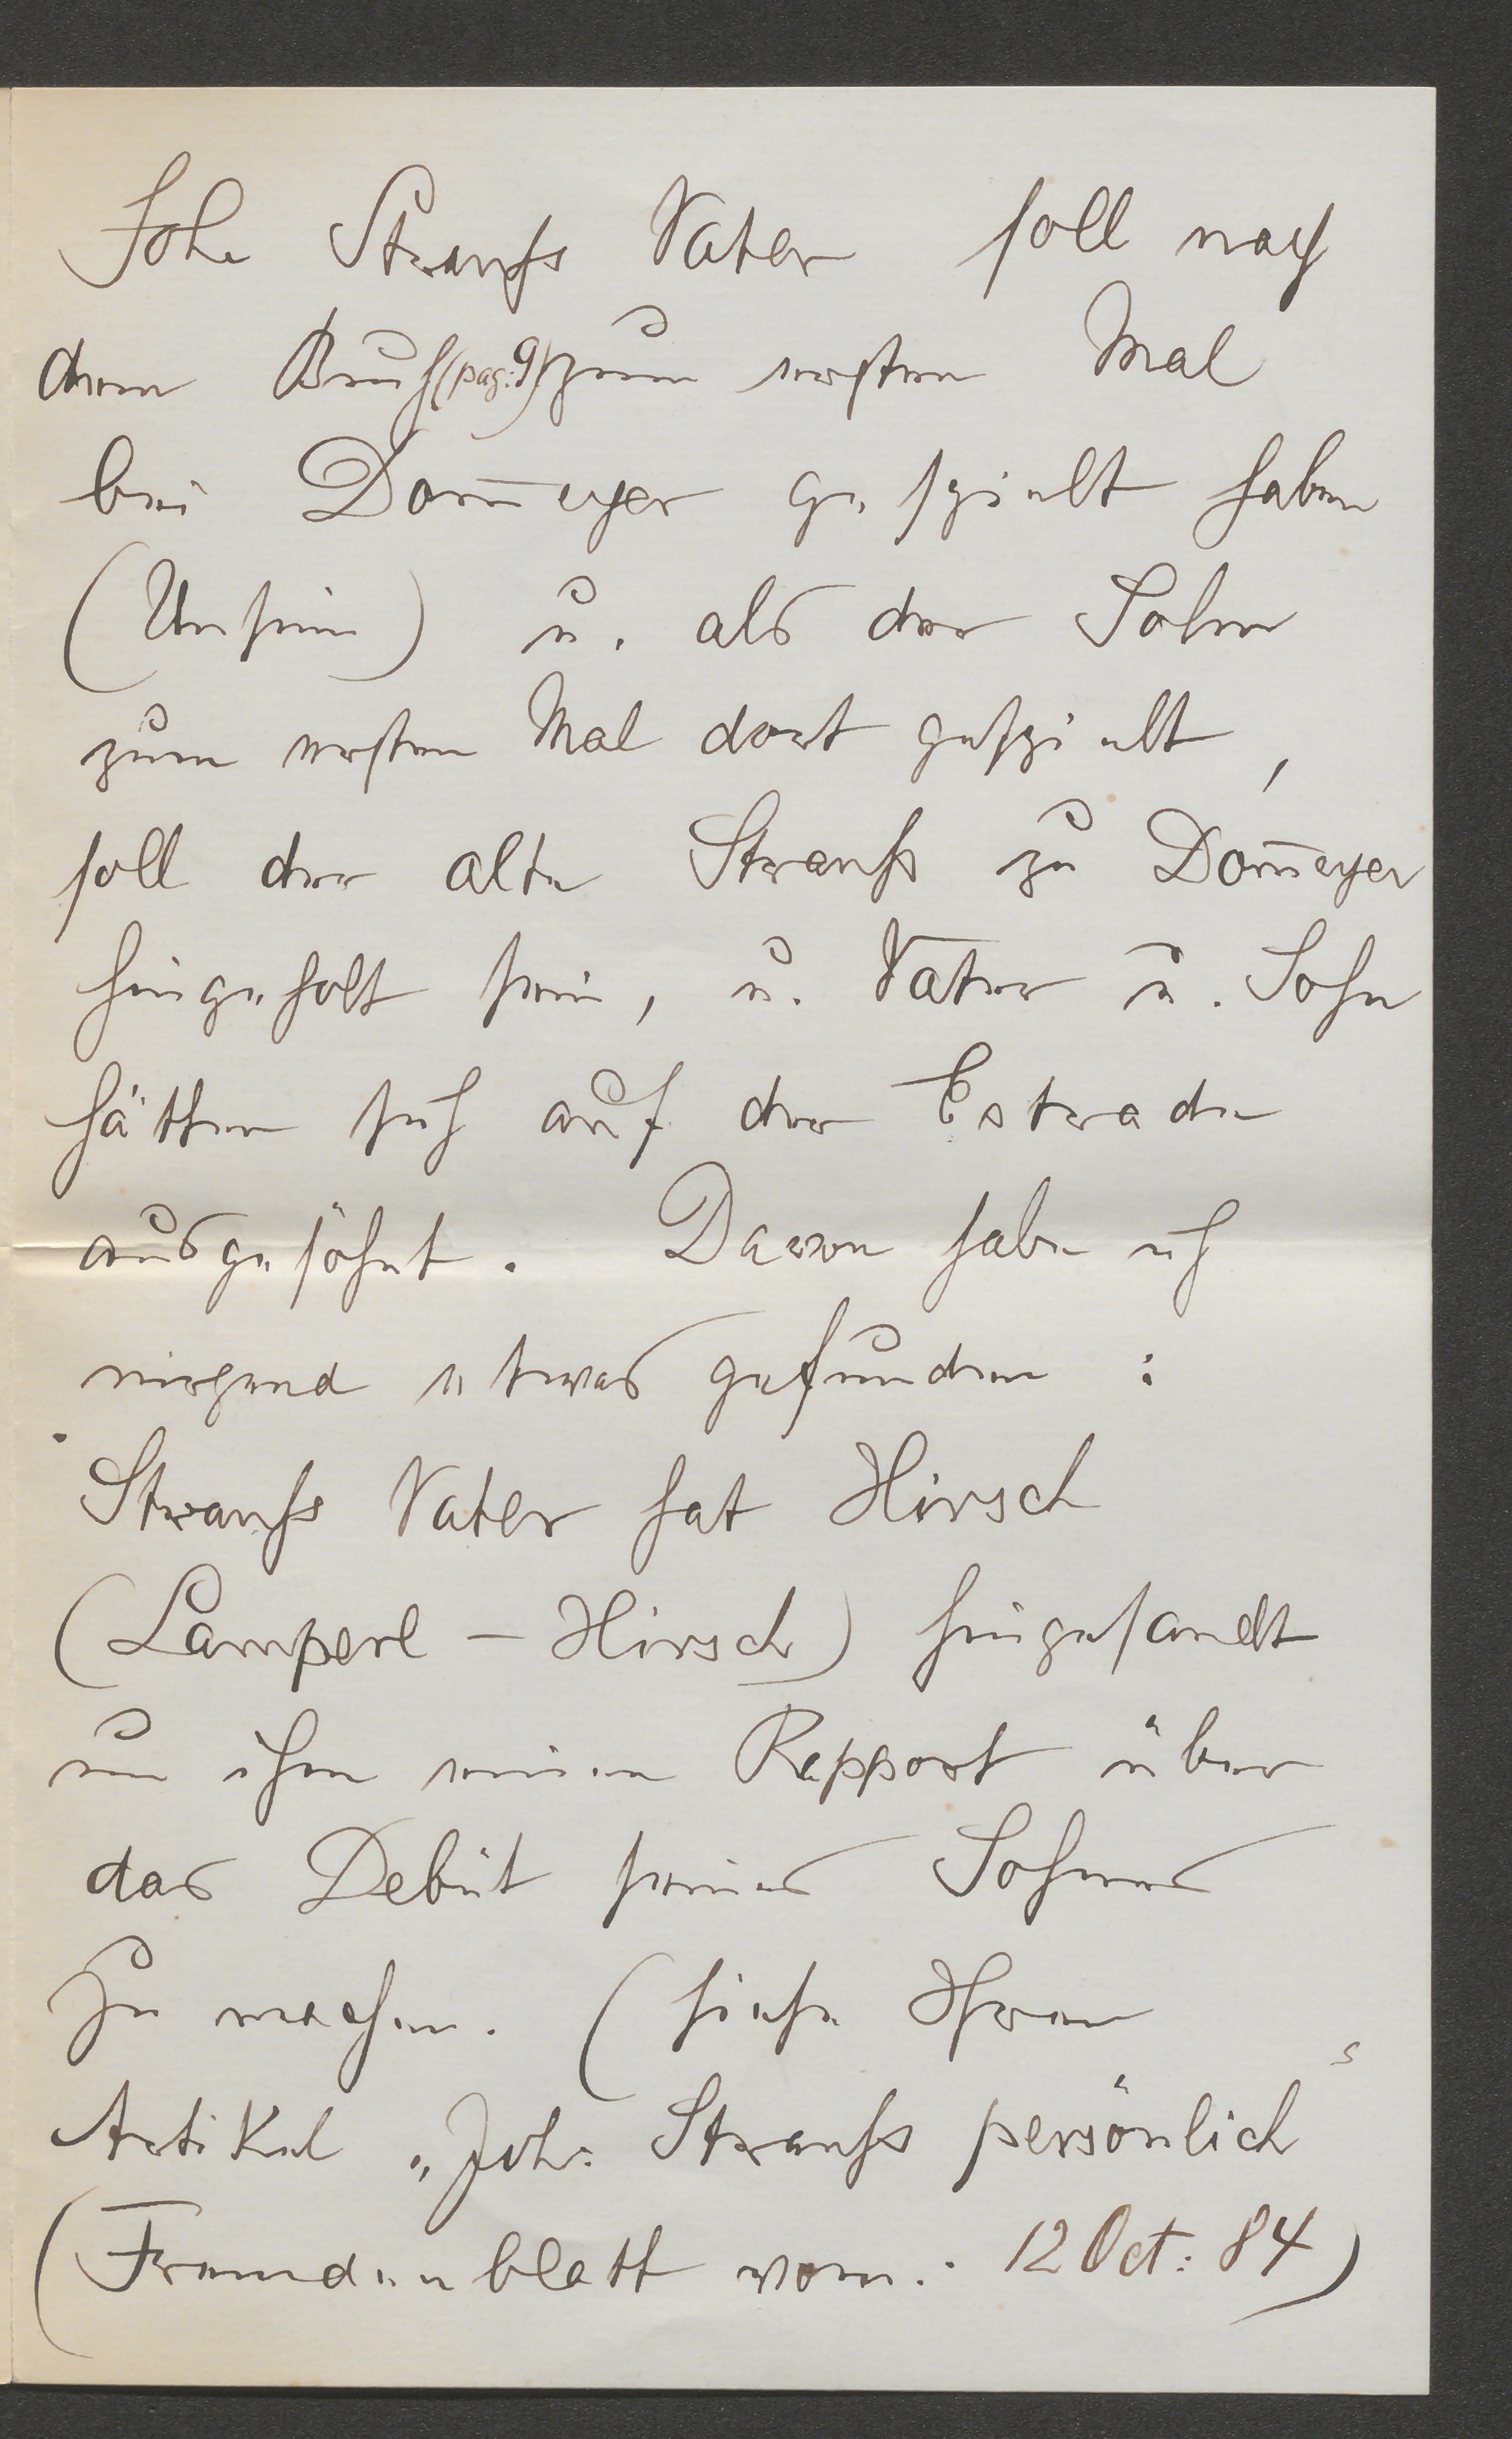 Joh. Strauß Vater soll nach
dem Bruch (pag: 9) zum ersten Mal
bei Dom̄eyer gespielt haben
(Unsinn) u. als der Sohn
zum ersten Mal dort gespielt,
soll der alte Strauß zu Dom̄eyer
hingeholt sein, u. Vater u. Sohn
hätten sich auf der Estrade
ausgesöhnt. Davon habe ich
nirgend etwas gefunden:
Strauß Vater hat Hirsch
(Lamperl-Hirsch) hingesandt
um ihm einen Rapport über
das Debüt seines Sohnes
zu machen. (siehe Ihren
Artikel „Joh: Strauß persönlich“
(Fremdenblatt vom: 12 Oct: 84)